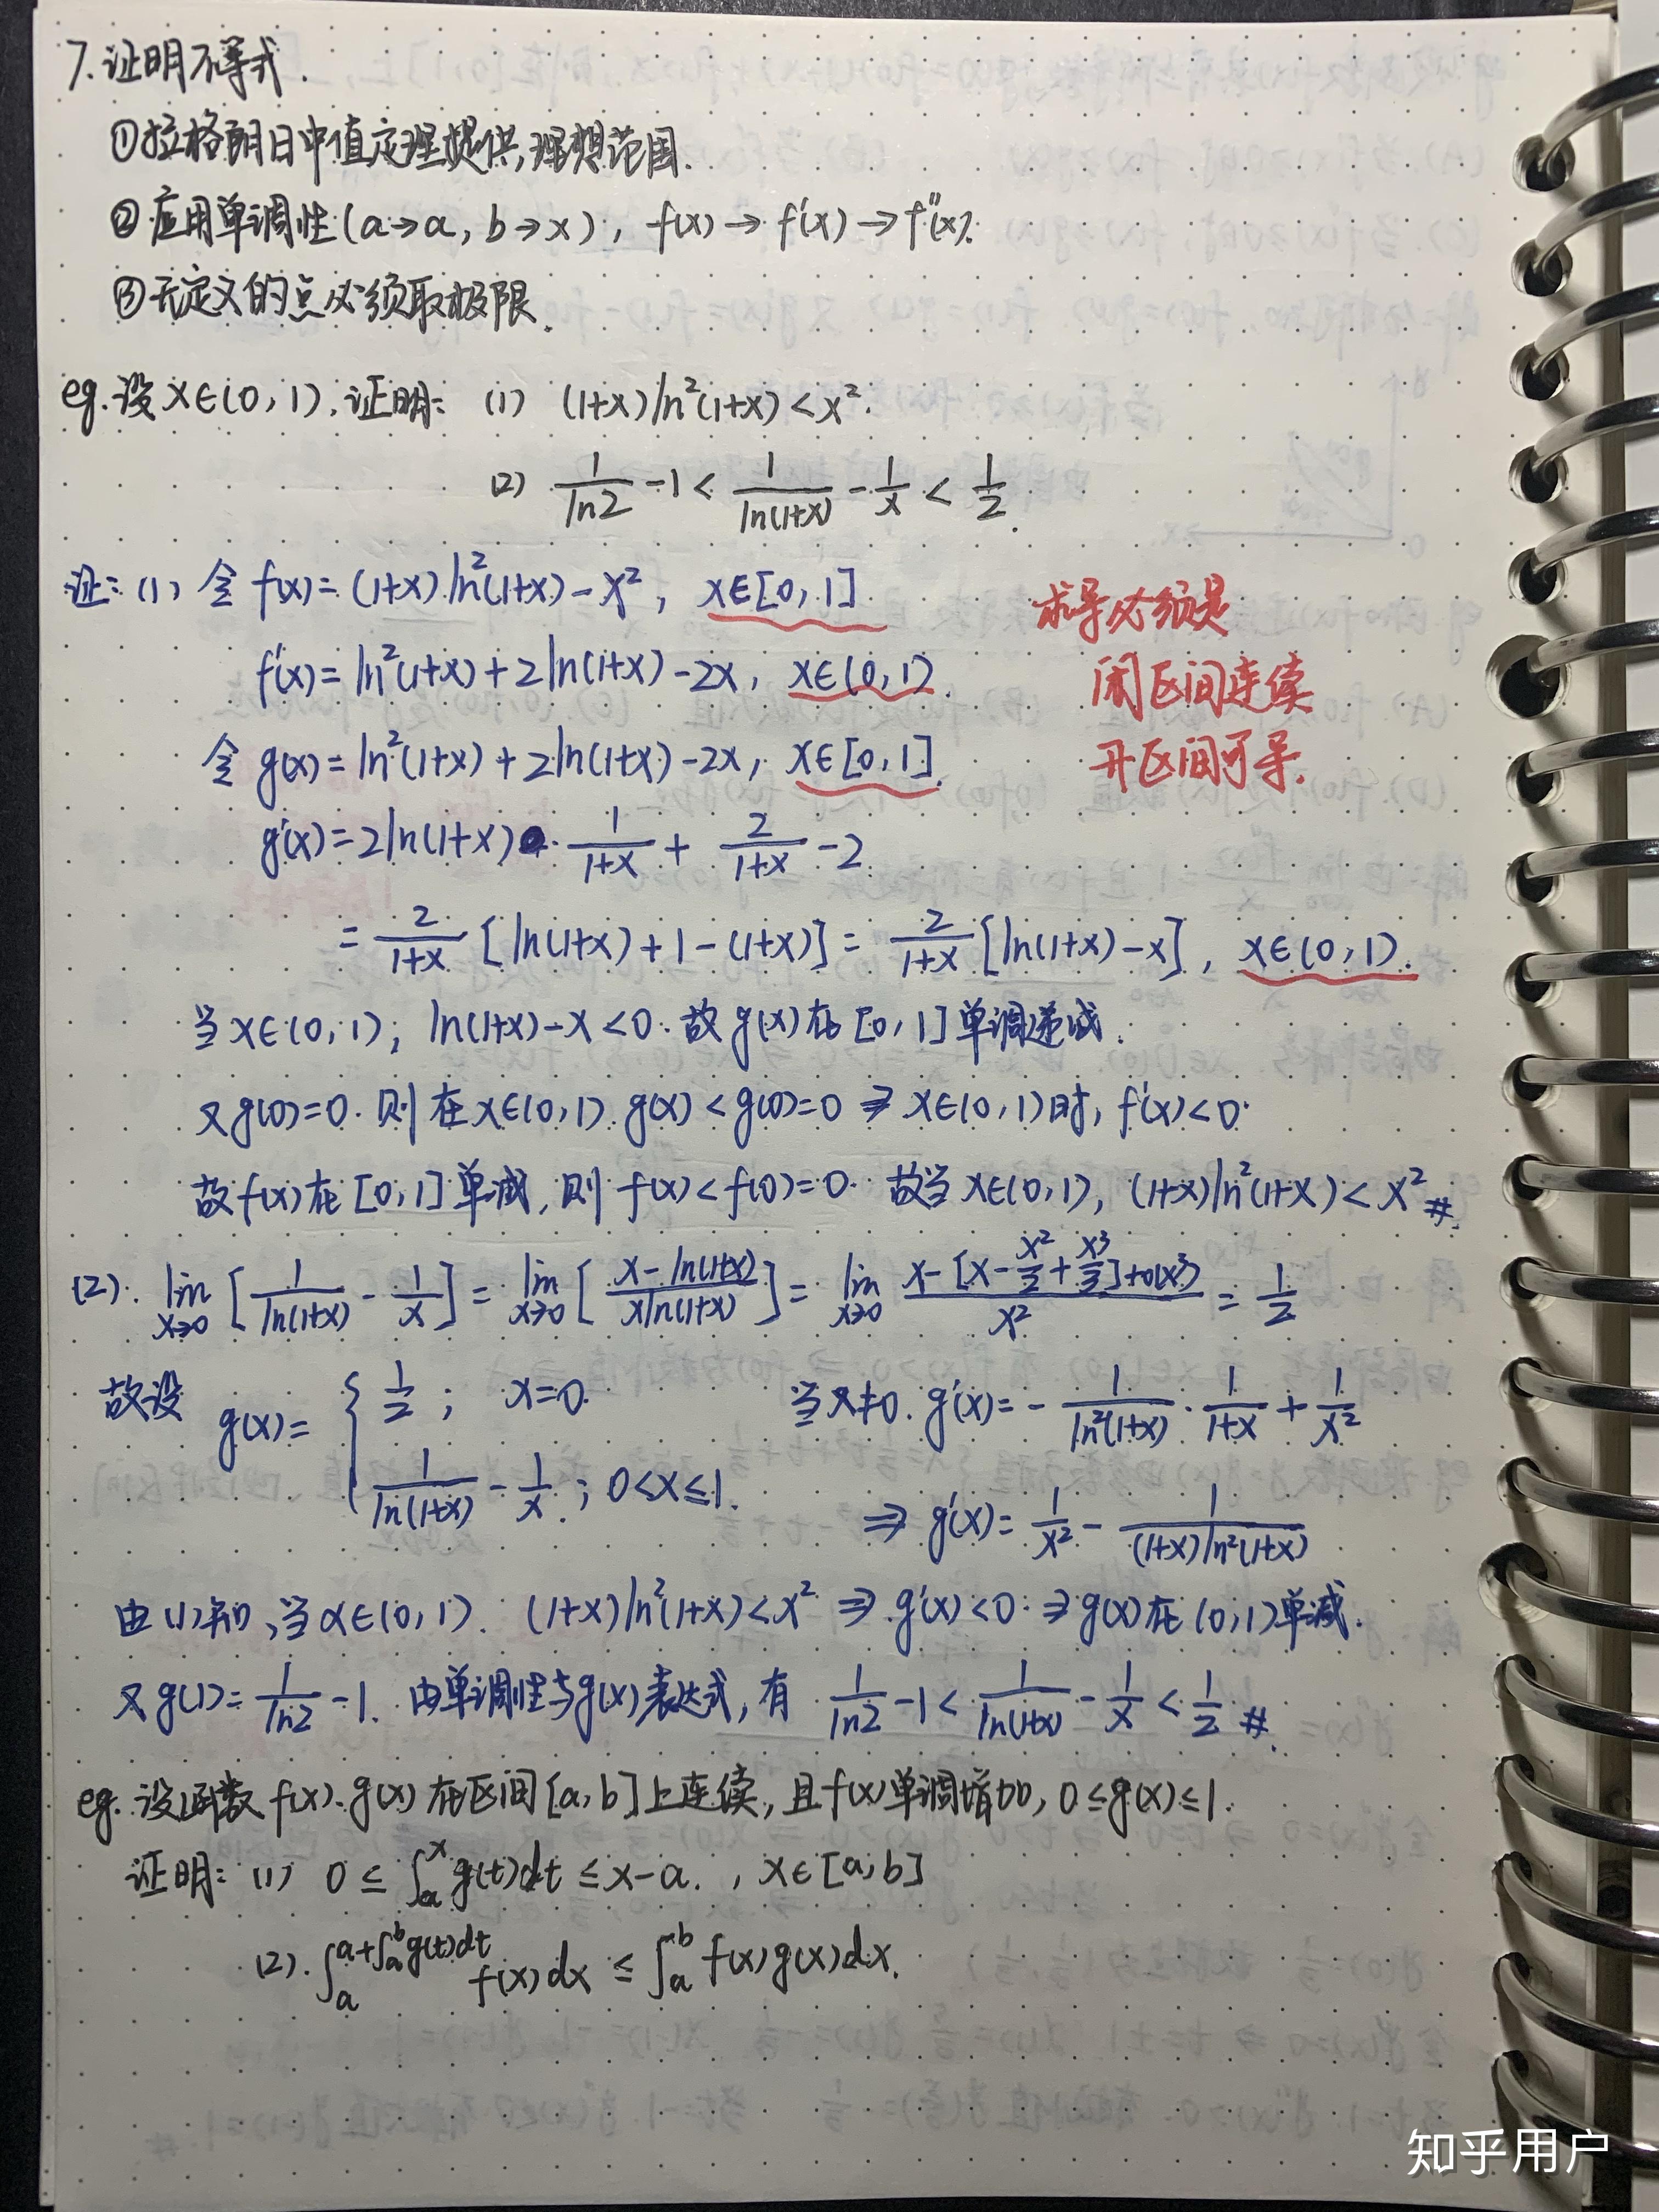 7.证明不等式.
①拉格朗日中值定理提供,理想范围.
②应用单调性(a→a, b→x), f(x)→f'(x)→f''(x).
③无定义的点必须取极限.
eg.设x∈(0,1),证明: (1) (1+x)ln²(1+x)<x².
(2) 1/ln2 -1 < 1/ln(1+x) - 1/x < 1/2.
证:(1) 令 f(x)=(1+x)ln²(1+x)-x², x∈[0,1]
求导必须是
f'(x)=ln²(1+x)+2ln(1+x)-2x, x∈(0,1).
闭区间连续
令 g(x)=ln²(1+x)+2ln(1+x)-2x, x∈[0,1].
开区间可导.
g'(x)=2ln(1+x)· 1/(1+x) + 2/(1+x) -2
= 2/(1+x) [ln(1+x)+1-(1+x)] = 2/(1+x) [ln(1+x)-x], x∈(0,1).
当x∈(0,1), ln(1+x)-x<0.故g(x)在[0,1]单调递减.
又g(0)=0.则在x∈(0,1).g(x)<g(0)=0⇒x∈(0,1)时,f'(x)<0.
故f(x)在[0,1]单减,则f(x)<f(0)=0.故当x∈(0,1),(1+x)ln²(1+x)<x² #.
(2). lim x→0 [1/ln(1+x) - 1/x] = lim x→0 [(x-ln(1+x))/(xln(1+x))] = lim x→0 (x-[x-x²/2+x³/3]+o(x³))/x² = 1/2
故设 g(x)= { 1/2; x=0. 当x≠0. g'(x)=- 1/ln²(1+x) · 1/(1+x) + 1/x²
1/ln(1+x) - 1/x; 0<x≤1. ⇒ g'(x)= 1/x² - 1/((1+x)ln²(1+x))
由(1)知,当x∈(0,1). (1+x)ln²(1+x)<x² ⇒ g'(x)<0 ⇒ g(x)在(0,1)单减.
又g(1)= 1/ln2 -1. 由单调性与g(x)表达式,有 1/ln2 -1 < 1/ln(1+x) - 1/x < 1/2 #.
eg.设函数f(x).g(x)在区间[a,b]上连续,且f(x)单调增加,0≤g(x)≤1.
证明:(1) 0≤∫_a^x g(t)dt≤x-a., x∈[a,b]
(2).∫_a^{a+∫_a^b g(t)dt} f(x)dx ≤ ∫_a^b f(x)g(x)dx.
知乎用户